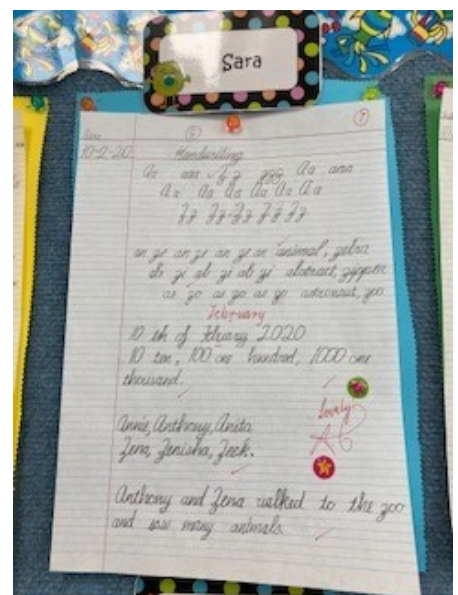 Sara
Sara
10-2-20
Handwriting
Aa aaa Zz zzz Aa aaa
Aa Aa Aa Aa Aa Aa
Zz Zz Zz Zz Zz Zz
an ze an ze an ze an animal, zebra
ab zi ab zi ab zi abstract, zipper
as zo as zo as zo astronaut, zoo
February
10 th of Febuary 2020
10 ten, 100 one hundred, 1000 one
thousand.
Lovely
Annie, Anthony, Anita
Zena, Zenisha, Zeek.
Anthony and Zena walked to the zoo
and saw many animals.